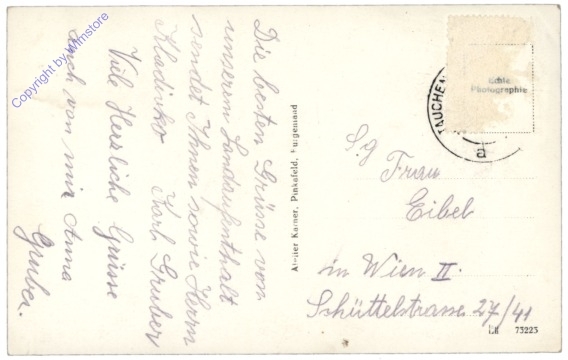 Die besten Grüsse vom
unserem Landaufenthalt
sendet Ihnen sowie Herrn
Karl Gruber
Viele Herzliche Grüsse
auch von mir Anna
Gruber.
Atelier Karner, Pinkafeld, Burgenland
TAUCHEN
Echte
Photographie
S.g Frau
Eibel
in Wien II.
Schüttelstrasse 27/41
73223
Copyright by Winstore